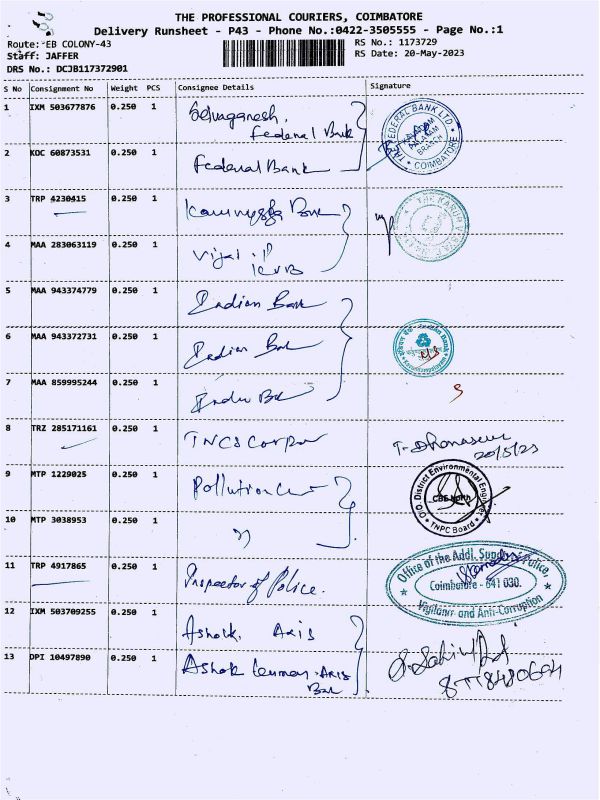 THE PROFESSIONAL COURIERS, COIMBATORE
Delivery Runsheet - P43 - Phone No.:0422-3505555 - Page No.:1
Route: EB COLONY-43
RS No.: 1173729
Staff: JAFFER
RS Date: 20-May-2023
DRS No.: DCJB117372901
S No Consignment No Weight PCS Consignee Details Signature
1 IXM 503677876 0.250 1 Selvaganesh,
Federal Bank
THE FEDERAL BANK LTD.
BRANCH
COIMBATORE
2 KOC 60873531 0.250 1 Federal Bank
3 TRP 4230415 0.250 1 Bank
4 MAA 283063119 0.250 1 Vijai . P
KVB
5 MAA 943374779 0.250 1 Indian Bank
6 MAA 943372731 0.250 1 Indian Bank
7 MAA 859995244 0.250 1 Indian Bk
8 TRZ 285171161 0.250 1 TNCS Corpor
T. Dhanasekar
20/5/23
9 MTP 1229025 0.250 1 Pollution
O/O. District Environmental Engineer
CBE North
TNPC Board
10 MTP 3038953 0.250 1 "
11 TRP 4917865 0.250 1 Inspector of Police.
Office of the Addl. Supdt. of Police
Coimbatore - 641 030.
Vigilance and Anti-Corruption
12 IXM 503709255 0.250 1 Ashok, Axis
13 DPI 10497890 0.250 1 Ashok Kumar. Axis
Bank